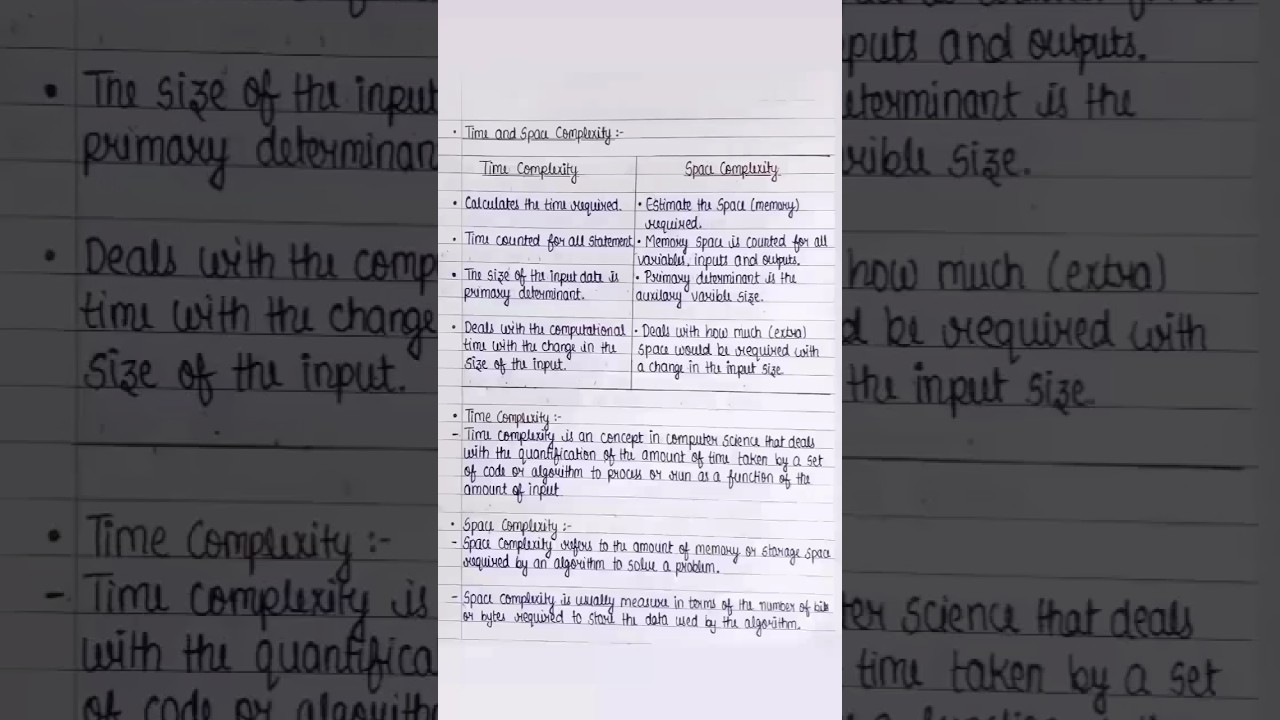 • Time and Space Complexity :-
Time Complexity
Space Complexity
• Calculates the time required.
• Estimate the Space (memory)
required.
• Time counted for all statement
• Memory space is counted for all
variables, inputs and outputs.
• The size of the input data is
primary determinant.
• Primary determinant is the
auxilary varible size.
• Deals with the computational
time with the change in the
size of the input.
• Deals with how much (extra)
space would be required with
a change in the input size
• Time Complexity :-
- Time complexity is an concept in computer science that deals
with the quantification of the amount of time taken by a set
of code or algorithm to process or run as a function of the
amount of input
• Space Complexity :-
- Space Complexity refers to the amount of memory or storage space
required by an algorithm to solve a problem.
- Space complexity is usually measure in terms of the number of
or bytes required to the data used by the algorithm.
• The size of the input
primary determinan
• Deals with the comp
time with the change
size of the input.
• Time Complexity :-
- Time complexity is
with the quantifica
of code or algorithm
puts and outputs.
eterminant is the
rible size.
how much (extra)
d be required with
the input size.
ter science that deals
time taken by a set